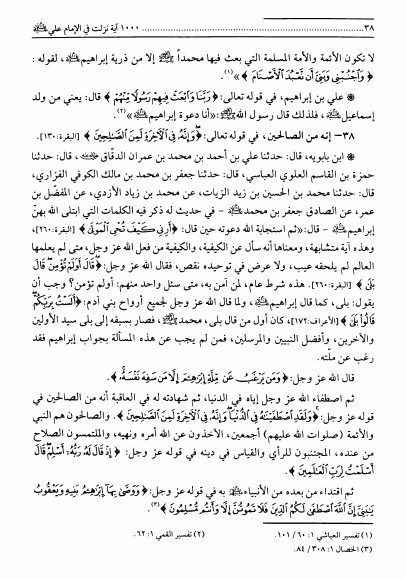 ٣٨ .......... ١٠٠٠ آية نزلت في الإمام علي ﷺ
لا تكون الأئمة والأمة المسلمة التي بعث فيها محمداً ﷺ إلا من ذرية إبراهيم ﷺ، لقوله :
﴿ وَاجْنُبْنِي وَبَنِيَّ أَن نَّعْبُدَ الْأَصْنَامَ ﴾»(١).
* علي بن إبراهيم، في قوله تعالى: ﴿ رَبَّنَا وَابْعَثْ فِيهِمْ رَسُولًا مِّنْهُمْ ﴾ قال: يعني من ولد
إسماعيل ﷺ، فلذلك قال رسول الله ﷺ: «أنا دعوة إبراهيم ﷺ»(٢).
٣٨- إنه من الصالحين، في قوله تعالى: ﴿ وَإِنَّهُ فِي الْآخِرَةِ لَمِنَ الصَّالِحِينَ ﴾ [البقرة: ١٣٠].
* ابن بابويه، قال: حدثنا علي بن أحمد بن محمد بن عمران الدقّاق، قال: حدثنا
حمزة بن القاسم العلوي العباسي، قال: حدثنا جعفر بن محمد بن مالك الكوفي الفزاري،
قال: حدثنا محمد بن الحسين بن زيد الزيات، عن محمد بن زياد الأزدي، عن المفضّل بن
عمر، عن الصادق جعفر بن محمد ﷺ - في حديث له ذكر فيه الكلمات التي ابتلى الله بهنّ
إبراهيم ﷺ - قال: «ثم استجابة الله دعوته حين قال: ﴿ أَرِنِي كَيْفَ تُحْيِ الْمَوْتَى ﴾ [البقرة: ٢٦٠]
وهذه آية متشابهة، ومعناها أنه سأل عن الكيفية، والكيفية من فعل الله عز وجل، متى لم يعلمها
العالم لم يلحقه عيب، ولا عرض في توحيده نقص، فقال الله عز وجل: ﴿ قَالَ أَوَلَمْ تُؤْمِن قَالَ
بَلَى ﴾ [البقرة: ٢٦٠]. هذه شرط عام، لمن آمن به، متى سئل واحد منهم: أولم تؤمن؟ وجب أن
يقول: بلى، كما قال إبراهيم ﷺ، ولما قال الله عز وجل لجميع أرواح بني آدم: ﴿ أَلَسْتُ بِرَبِّكُمْ
قَالُوا بَلَى ﴾ [الأعراف: ١٧٢]، كان أول من قال بلى، محمد ﷺ، فصار بسبقه إلى بلى سيد الأولين
والآخرين، وأفضل النبيين والمرسلين، فمن لم يجب عن هذه المسألة بجواب إبراهيم فقد
رغب عن ملّته.
قال الله عز وجل: ﴿ وَمَن يَرْغَبُ عَن مِّلَّةِ إِبْرَاهِيمَ إِلَّا مَن سَفِهَ نَفْسَهُ ﴾.
ثم اصطفاء الله عز وجل إياه في الدنيا، ثم شهادته له في العاقبة أنه من الصالحين في
قوله عز وجل: ﴿ وَلَقَدِ اصْطَفَيْنَاهُ فِي الدُّنْيَا وَإِنَّهُ فِي الْآخِرَةِ لَمِنَ الصَّالِحِينَ ﴾. والصالحون هم النبي
والأئمة (صلوات الله عليهم) أجمعين، الآخذون عن الله أمره ونهيه، والملتمسون الصلاح
من عنده، المجتنبون للرأي والقياس في دينه في قوله عز وجل: ﴿ إِذْ قَالَ لَهُ رَبُّهُ أَسْلِمْ قَالَ
أَسْلَمْتُ لِرَبِّ الْعَالَمِينَ ﴾.
ثم اقتداء من بعده من الأنبياء ﷺ به في قوله عز وجل: ﴿ وَوَصَّى بِهَا إِبْرَاهِيمُ بَنِيهِ وَيَعْقُوبُ
يَا بَنِيَّ إِنَّ اللَّهَ اصْطَفَى لَكُمُ الدِّينَ فَلَا تَمُوتُنَّ إِلَّا وَأَنتُم مُّسْلِمُونَ ﴾(٣).
(١) تفسير العياشي ١: ٦٠/ ١٠١. (٢) تفسير القمي ١: ٦٢.
(٣) الخصال ١: ٣٠٨/ ٨٤.